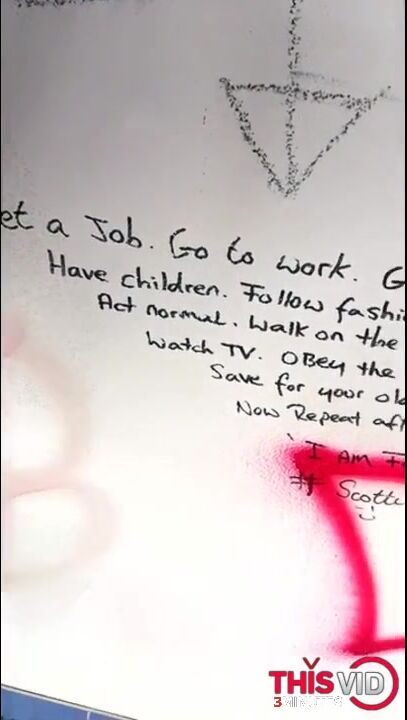 et a Job. Go to work. G
Have children. Follow fashi
Act normal. Walk on the
Watch TV. OBey the
Save for your old
Now Repeat aft
'I AM F
# Scotty
THIS VID
3 MINUTES